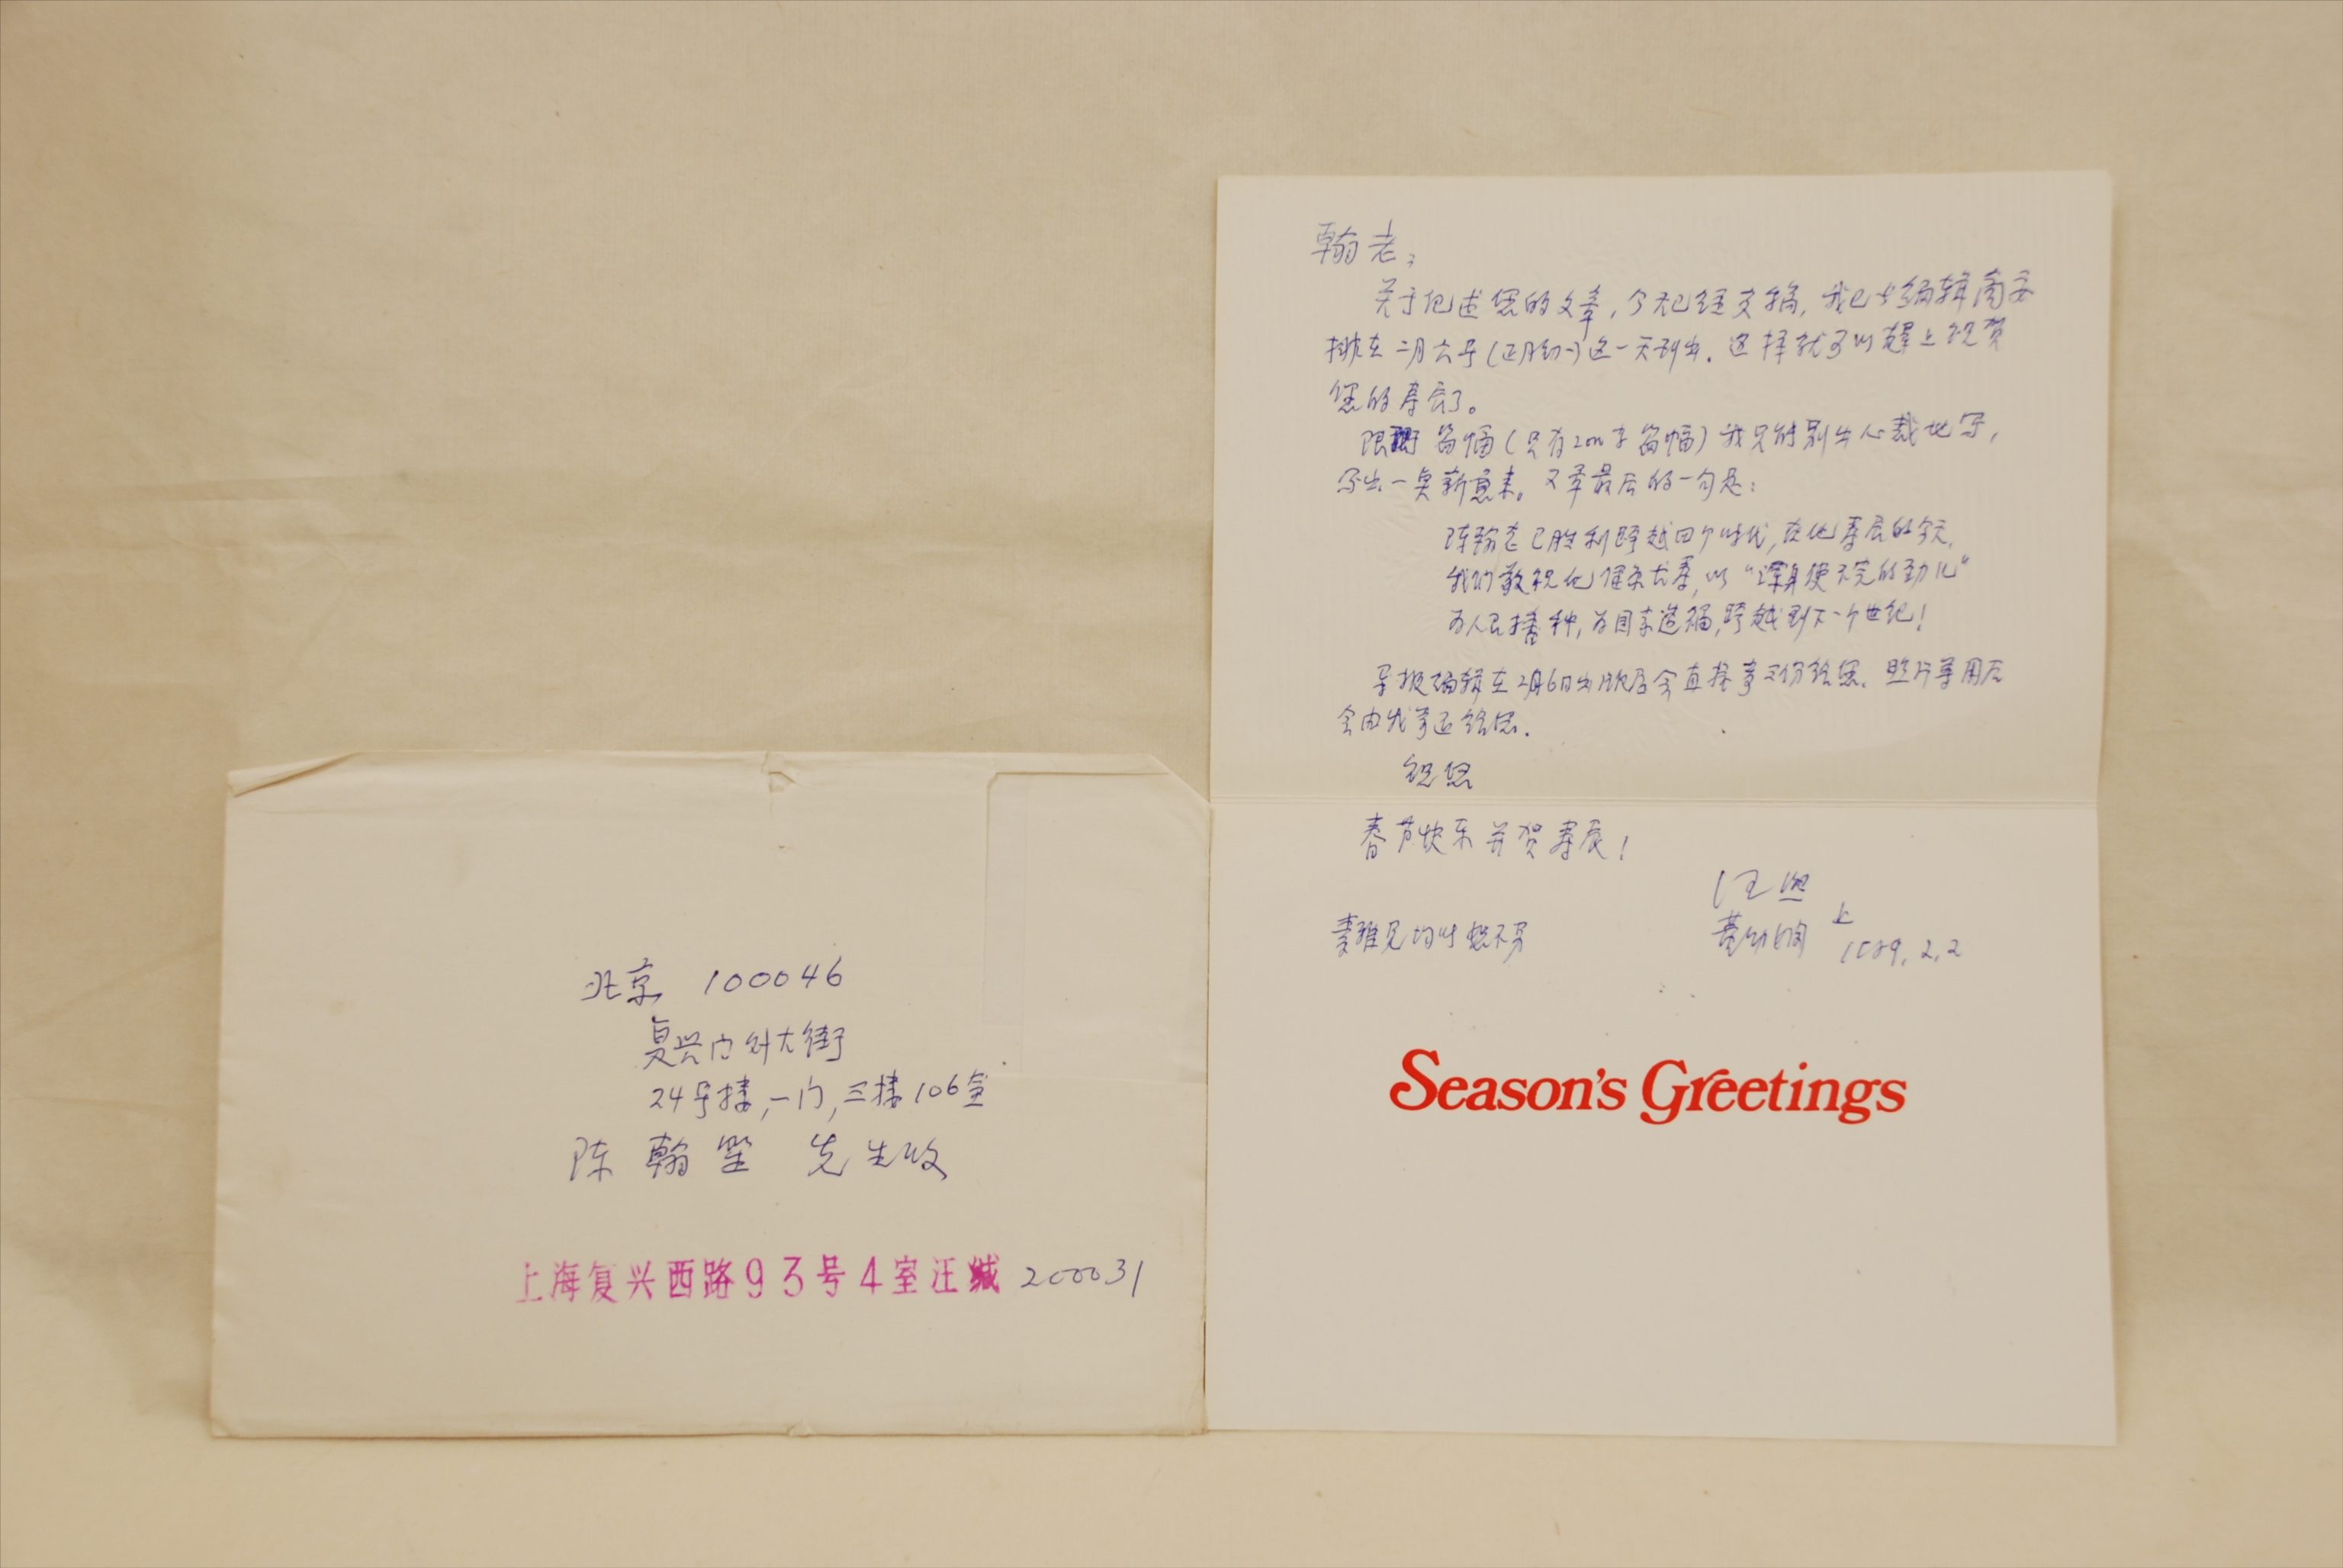 北京 100046
复兴门外大街
24号楼,一门,三楼106室
陈翰笙 先生收
上海复兴西路93号4室汪缄 200031
翰老:
关于记述您的文章,今天已经交稿,我已与编辑商妥
排在二月六号(正月初一)这一天刊出.这样就可以赶上祝贺
您的寿辰了。
限于篇幅(只有2000字篇幅)我只能别出心裁地写,
写出一点新意来。文章最后的一句是:
陈翰老已胜利跨越四个时代,在他寿辰的今天,
我们敬祝他健康长寿,以“浑身使不完的劲儿”
为人民播种,为国家造福,跨越到下一个世纪!
导报编辑在2月6日出版后会直接寄三份给您.照片等用后
会由我寄还给您.
祝您
春节快乐并贺寿辰!
汪熙
上
1989.2.2
Season's Greetings